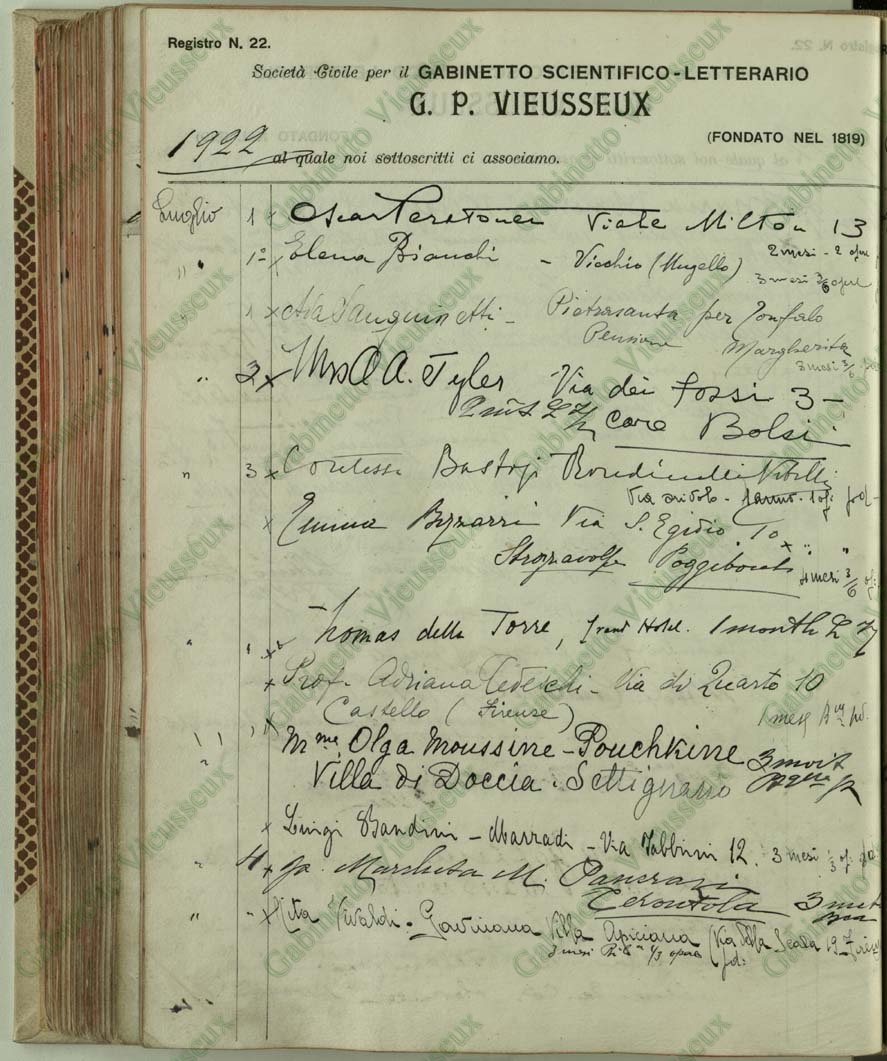 Registro N. 22.
Società Civile per il GABINETTO SCIENTIFICO-LETTERARIO
G. P. VIEUSSEUX
(FONDATO NEL 1819)
1922 al quale noi sottoscritti ci associamo.
Luglio 1 x Viale Milton 13
" 1º x Elena Bianchi - Vicchio (Mugello) 2 mesi - 2 opere
3 mesi 3/6
1 x Ada Sanguinetti - Pietrasanta per Tonfalo
Pensione Margherita
3 mesi 3/6
" 3 x Mrs A. Tyler Via dei Fossi 3 -
Care Bolsi
" 3 x Contessa Bastogi Rondinelli Vitelli
Via
x Emma Bizzarri Via S. Egidio 10
Strozzavolpe Poggibonsi 4 mesi 3/6
" Thomas della Torre, Grand Hotel. 1 month
x Prof. Adriana Tedeschi - Via di Quarto 10
Castello (Firenze) 1 mese
Mme Olga Moussine-Pouchkine 3 mois
Villa di Doccia. Settignano
x Luigi Bandini - Marradi - Via Fabbrini 12. 3 mesi
" 4 x Margherita M. Pancrazi
Terontola 3 mesi
" " x Rita Vivaldi - Gavinana Villa Apiciana (Via della Scala 19 Firenze
3 mesi 1/3 opere